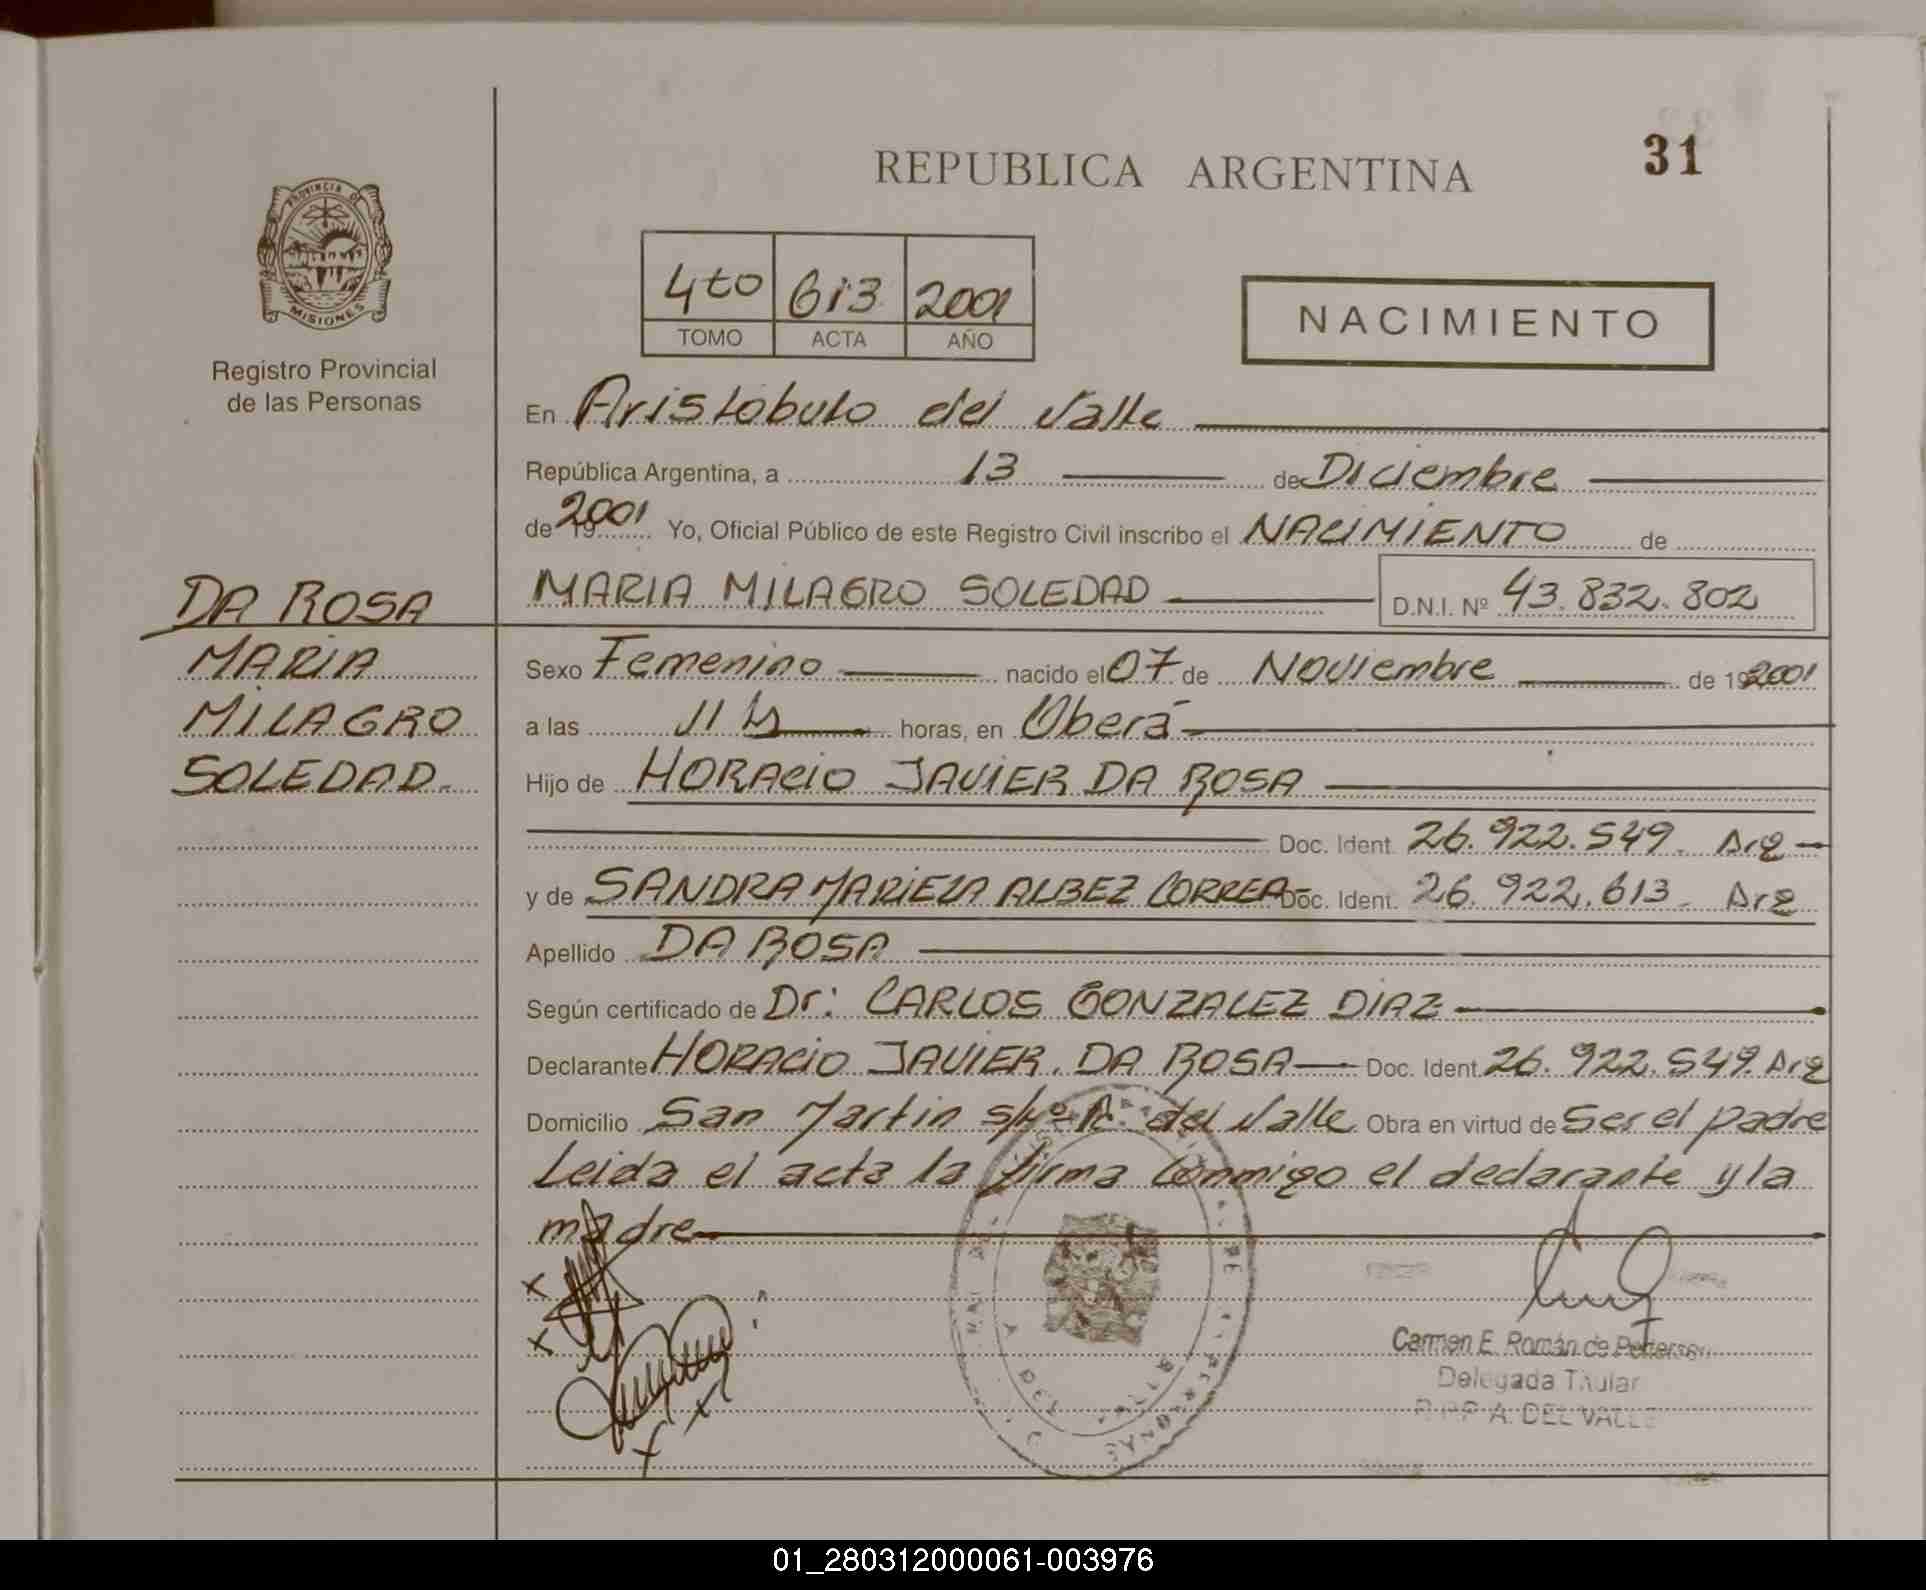 REPUBLICA ARGENTINA
31
PROVINCIA DE
MISIONES
Registro Provincial
de las Personas
4to 613 2001
TOMO ACTA AÑO
NACIMIENTO
En Aristobulo del Valle
República Argentina, a 13 de Diciembre
de 19 2001 Yo, Oficial Público de este Registro Civil inscribo el NACIMIENTO de
MARIA MILAGRO SOLEDAD D.N.I. Nº 43.832.802
DA ROSA
MARIA
MILAGRO
SOLEDAD.
Sexo Femenino nacido el 07 de Noviembre de 19 2001
a las 11 hs horas, en Oberá
Hijo de HORACIO JAVIER DA ROSA
Doc. Ident. 26.922.549. Arg
y de SANDRA MARIELA ALBEZ CORREA Doc. Ident. 26.922.613. Arg
Apellido DA ROSA
Según certificado de Dr: CARLOS GONZALEZ DIAZ
Declarante HORACIO JAVIER. DA ROSA Doc. Ident. 26.922.549. Arg
Domicilio San Martin s/nº A. del Valle Obra en virtud de Ser el padre
Leida el acta la firma conmigo el declarante y la
madre
Carmen E. Román de Petersen
Delegada Titular
R.P.P. A. DEL VALLE
01_280312000061-003976